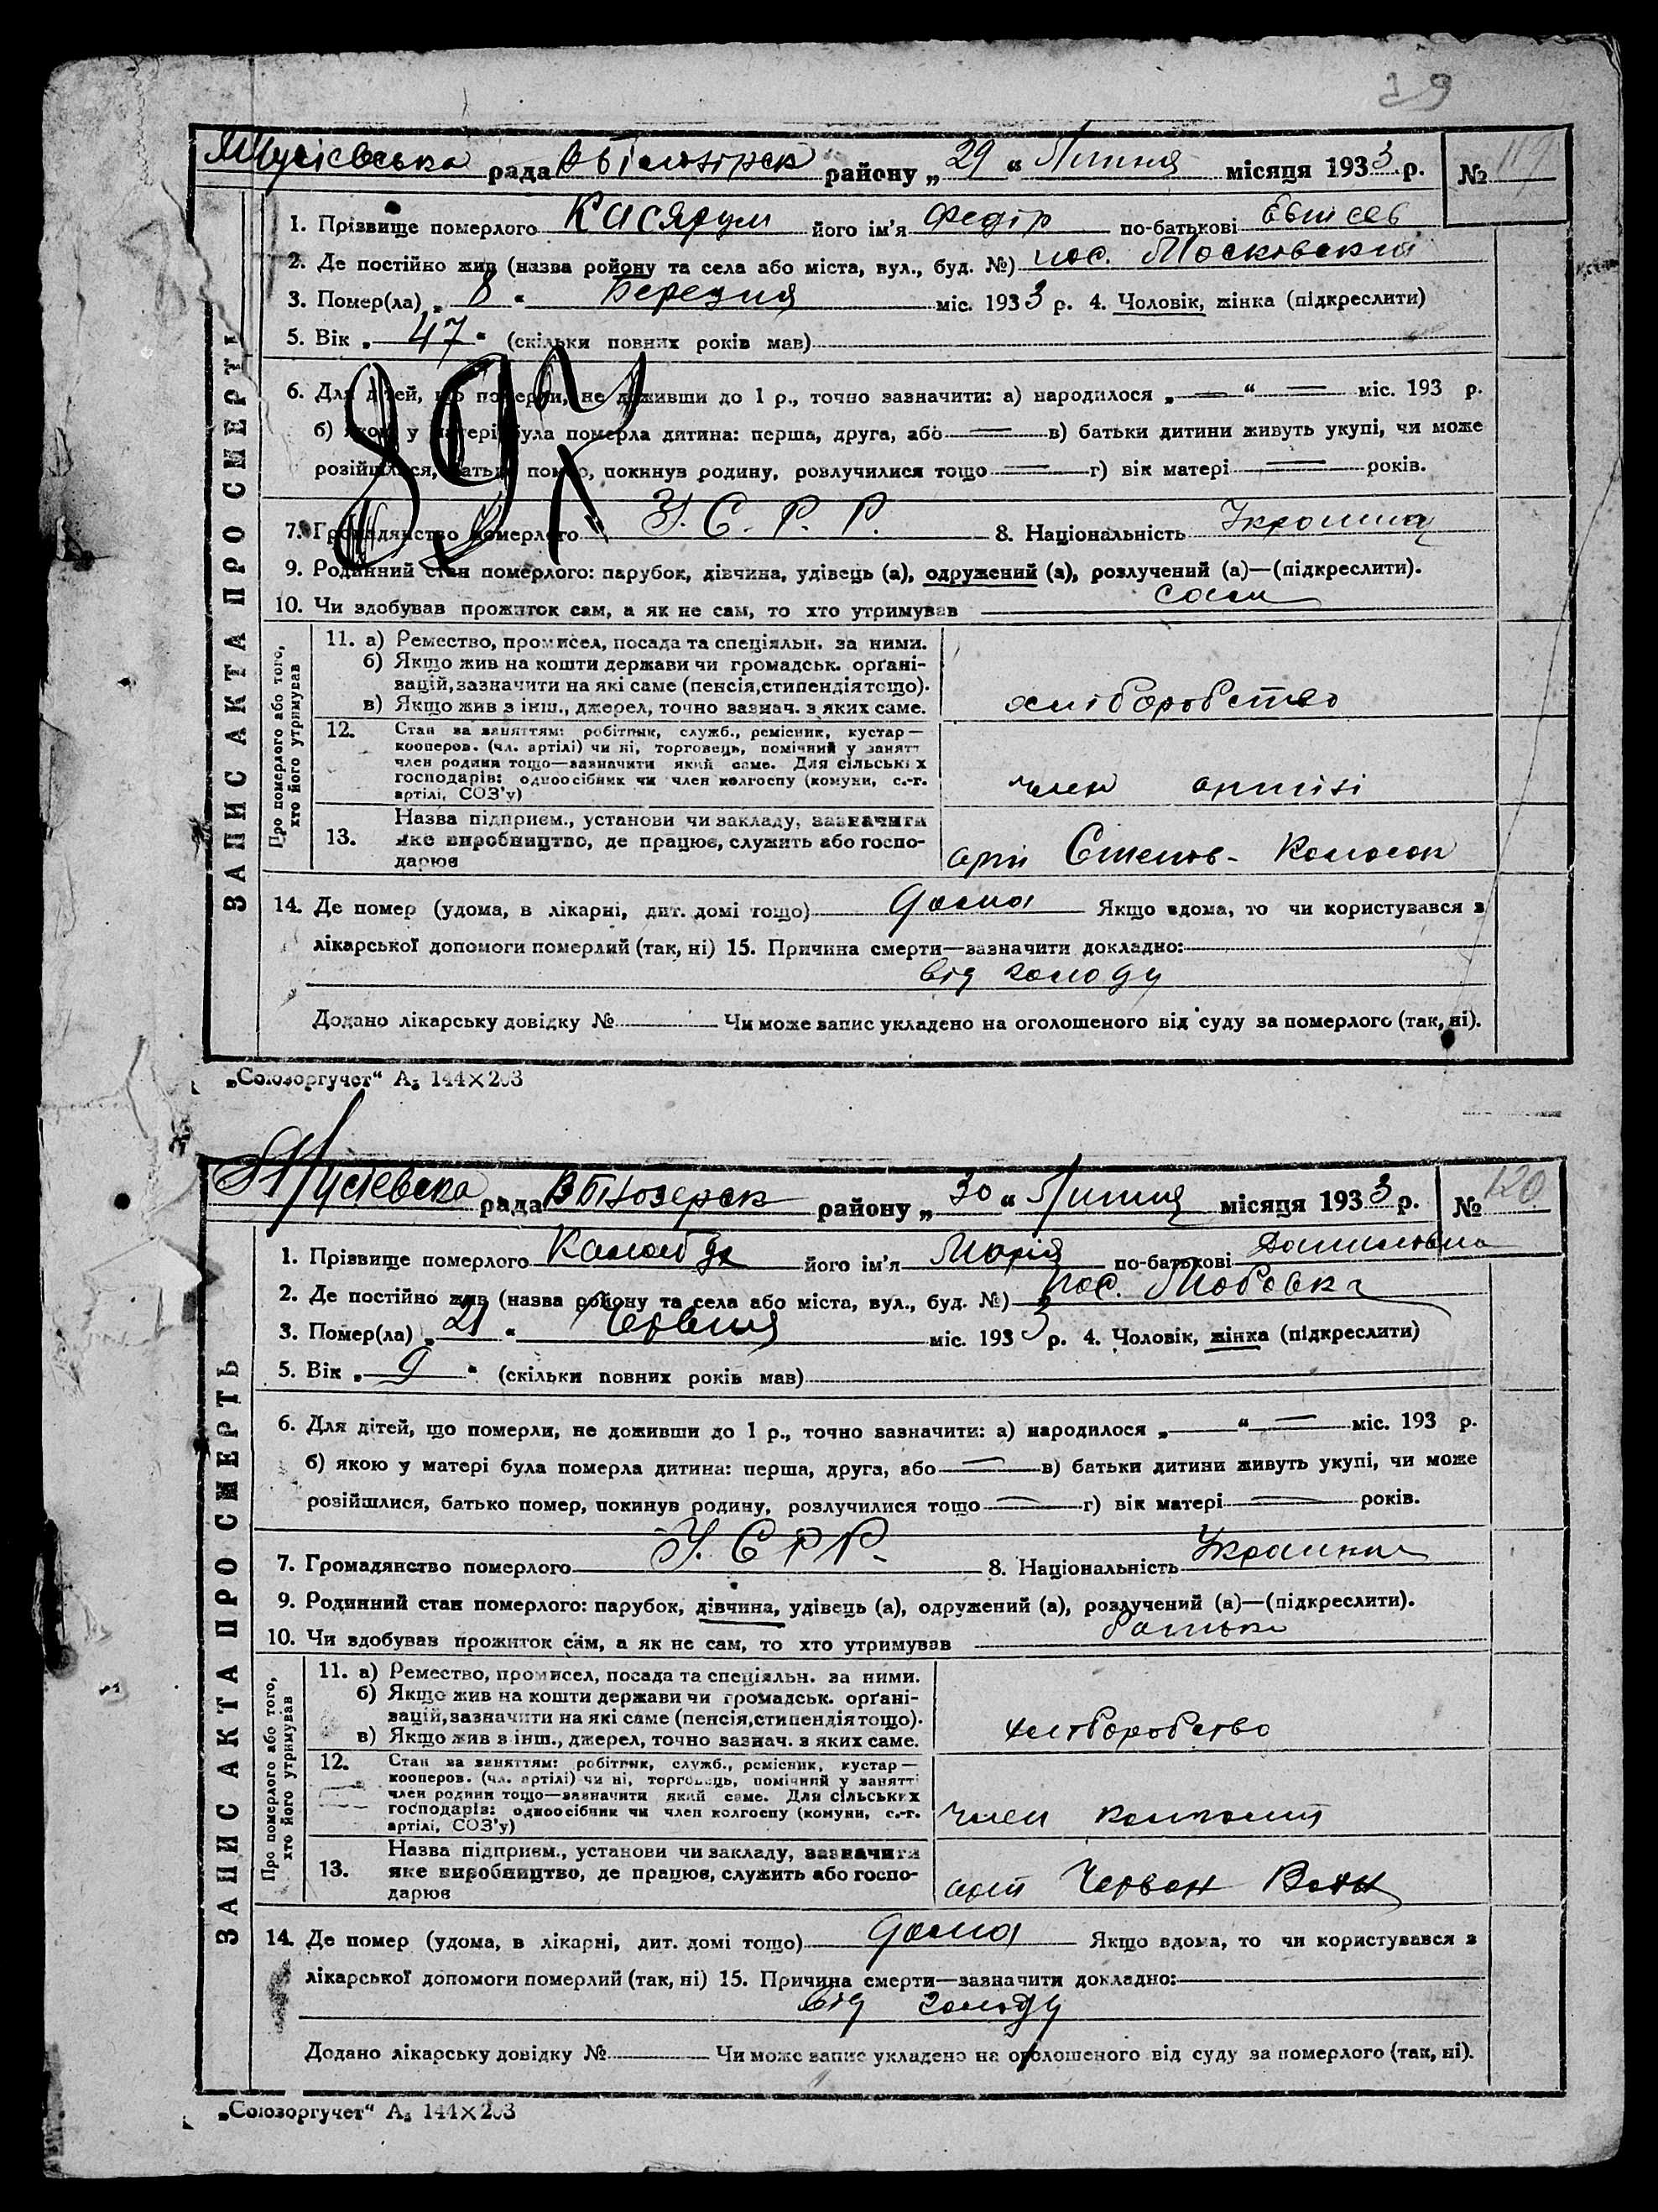 19
Мусієвська рада В Білозірск району „29“ Липня місяця 1933 р. № 119
1. Прізвище померлого його ім'я Федір по-батькові
2. Де постійно жив (назва ройону та села або міста, вул., буд. №) пос. Московский
3. Помер(ла) „8“ Березня міс. 1933 р. 4. Чоловік, жінка (підкреслити)
5. Вік „47“ (скільки повних років мав)
6. Для дітей, що померли, не доживши до 1 р., точно зазначити: а) народилося „—“ — міс. 193 р.
б) якою у матері була померла дитина: перша, друга, або — в) батьки дитини живуть укупі, чи може
розійшлися, батько помер, покинув родину, розлучилися тощо — г) вік матері — років.
7. Громадянство померлого У. С. Р. Р. 8. Національність
9. Родинний стан померлого: парубок, дівчина, удівець (а), одружений (а), розлучений (а)—(підкреслити).
10. Чи здобував прожиток сам, а як не сам, то хто утримував сам
ЗАПИС АКТА ПРО СМЕРТЬ
Про померлого або того,
хто його утримував
11. а) Ремество, промисел, посада та спеціяльн. за ними.
б) Якщо жив на кошти держави чи громадськ. орґані-
зацій, зазначити на які саме (пенсія, стипендія тощо).
в) Якщо жив з інш., джерел, точно зазнач. з яких саме.
хліборобство
12. Стан за заняттям: робітник, служб., ремісник, кустар—
кооперов. (чл. артілі) чи ні, торговець, помічний у занятт
член родини тощо—зазначити який саме. Для сільських
господарів: одноосібник чи член колгоспу (комуни, с.-г.
артілі, СОЗ'у)
член артілі
13. Назва підприєм., установи чи закладу, зазначити
яке виробництво, де працює, служить або госпо-
дарює
арт Степов- Колосок
14. Де помер (удома, в лікарні, дит. домі тощо) дома Якщо вдома, то чи користувався з
лікарської допомоги померлий (так, ні) 15. Причина смерти—зазначити докладно:
від голоду
Додано лікарську довідку № Чи може запис укладено на оголошеного від суду за померлого (так, ні).
„Союзоргучет“ А₅ 144×203
Мусієвська рада В Білозерск району „30“ Липня місяця 1933 р. № 120
1. Прізвище померлого його ім'я Марія по-батькові Данилівна
2. Де постійно жив (назва ройону та села або міста, вул., буд. №) пос.
3. Помер(ла) „21“ Червня міс. 1933 р. 4. Чоловік, жінка (підкреслити)
5. Вік „9“ (скільки повних років мав)
6. Для дітей, що померли, не доживши до 1 р., точно зазначити: а) народилося „—“ — міс. 193 р.
б) якою у матері була померла дитина: перша, друга, або — в) батьки дитини живуть укупі, чи може
розійшлися, батько помер, покинув родину, розлучилися тощо — г) вік матері — років.
7. Громадянство померлого У. С Р Р. 8. Національність
9. Родинний стан померлого: парубок, дівчина, удівець (а), одружений (а), розлучений (а)—(підкреслити).
10. Чи здобував прожиток сам, а як не сам, то хто утримував батько
ЗАПИС АКТА ПРО СМЕРТЬ
Про померлого або того,
хто його утримував
11. а) Ремество, промисел, посада та спеціяльн. за ними.
б) Якщо жив на кошти держави чи громадськ. орґані-
зацій, зазначити на які саме (пенсія, стипендія тощо).
в) Якщо жив з інш., джерел, точно зазнач. з яких саме.
хліборобство
12. Стан за заняттям: робітник, служб., ремісник, кустар—
кооперов. (чл. артілі) чи ні, торговець, помічний у занятті
член родини тощо—зазначити який саме. Для сільських
господарів: одноосібник чи член колгоспу (комуни, с.-г.
артілі, СОЗ'у)
член
13. Назва підприєм., установи чи закладу, зазначити
яке виробництво, де працює, служить або госпо-
дарює
арт Червон
14. Де помер (удома, в лікарні, дит. домі тощо) дома Якщо вдома, то чи користувався з
лікарської допомоги померлий (так, ні) 15. Причина смерти—зазначити докладно:
від голоду
Додано лікарську довідку № Чи може запис укладено на оголошеного від суду за померлого (так, ні).
„Союзоргучет“ А₅ 144×203